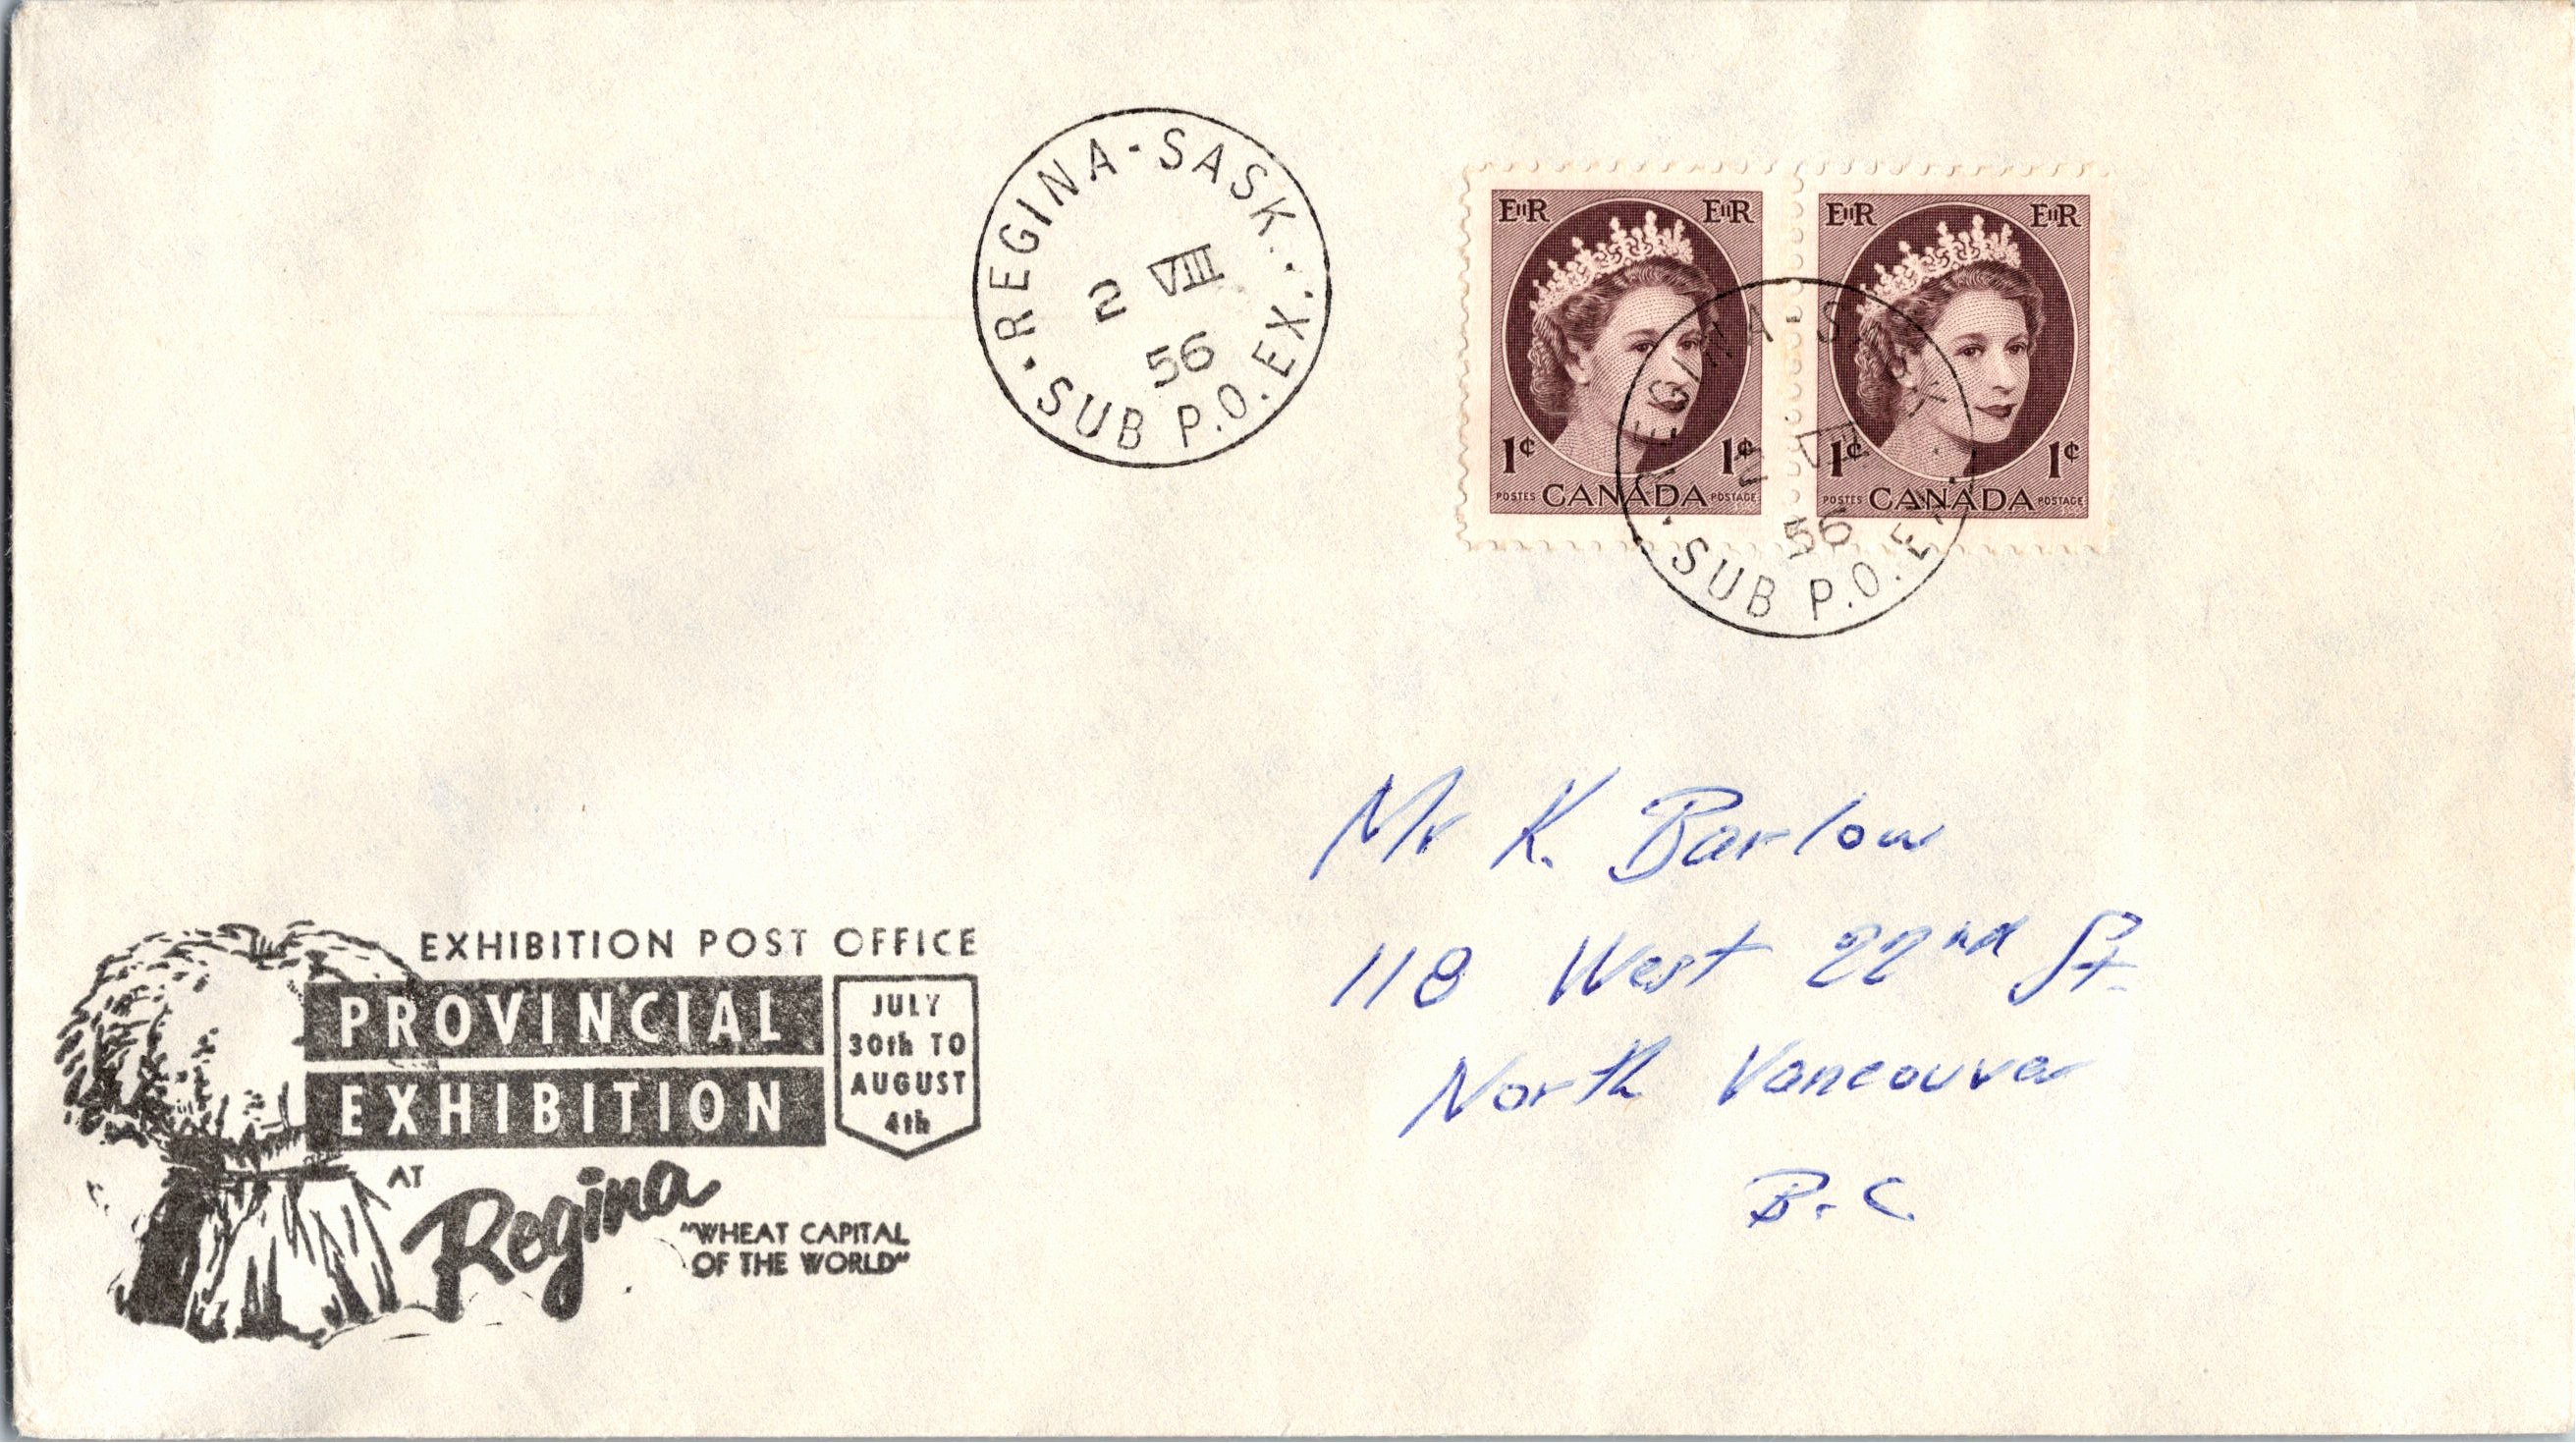 REGINA-SASK.
2 VIII
56
SUB P.O. EX.
EIIR EIIR
1¢ 1¢
POSTES CANADA POSTAGE
EIIR EIIR
1¢ 1¢
POSTES CANADA POSTAGE
56
SUB P.O. E
Mr K. Barlow
118 West 22nd St.
North Vancouver
B.C.
EXHIBITION POST OFFICE
PROVINCIAL
EXHIBITION
JULY
30th TO
AUGUST
4th
AT
Regina
"WHEAT CAPITAL
OF THE WORLD"